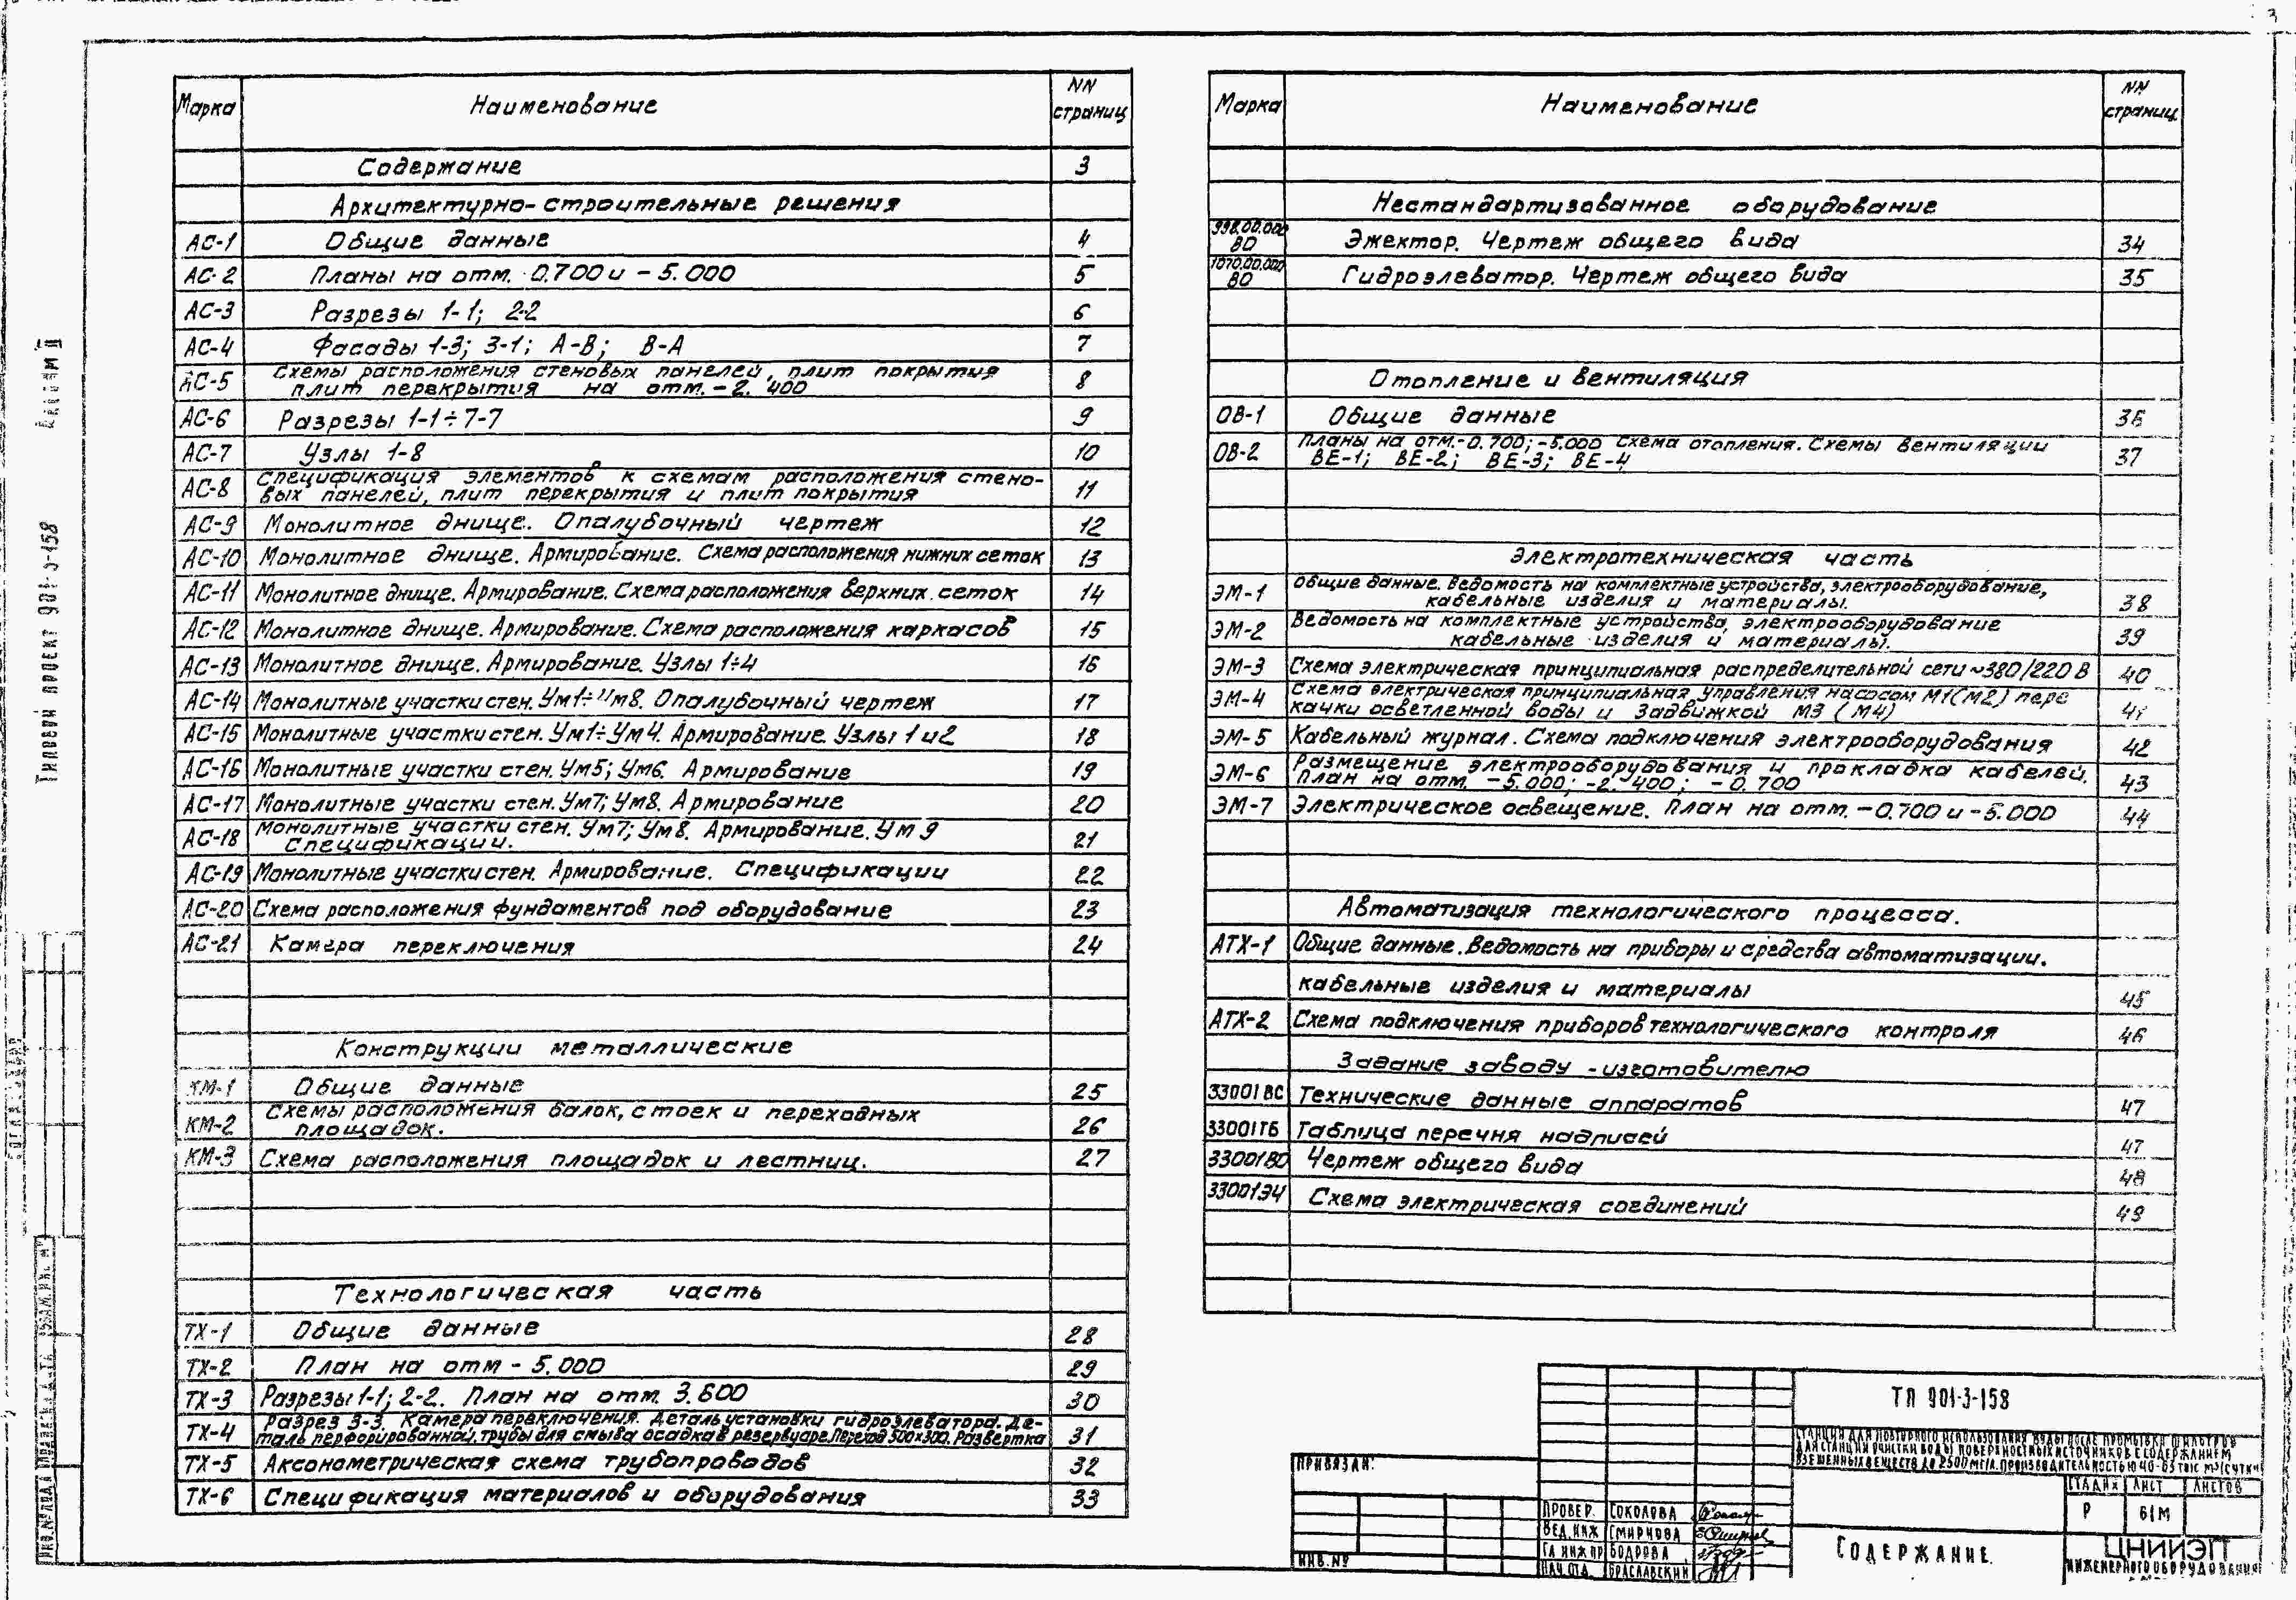 3
Марка Наименование NN страниц
Содержание 3
Архитектурно-строительные решения
АС-1 Общие данные 4
АС-2 Планы на отм. -0.700 и -5.000 5
АС-3 Разрезы 1-1; 2-2 6
АС-4 Фасады 1-3; 3-1; А-В; В-А 7
АС-5 Схемы расположения стеновых панелей, плит покрытия
плит перекрытия на отм. -2.400 8
АС-6 Разрезы 1-1÷7-7 9
АС-7 Узлы 1-8 10
АС-8 Спецификация элементов к схемам расположения стено-
вых панелей, плит перекрытия и плит покрытия 11
АС-9 Монолитное днище. Опалубочный чертеж 12
АС-10 Монолитное днище. Армирование. Схема расположения нижних сеток 13
АС-11 Монолитное днище. Армирование. Схема расположения верхних сеток 14
АС-12 Монолитное днище. Армирование. Схема расположения каркасов 15
АС-13 Монолитное днище. Армирование. Узлы 1÷4 16
АС-14 Монолитные участки стен. Ум1÷Ум8. Опалубочный чертеж 17
АС-15 Монолитные участки стен. Ум1÷Ум4. Армирование. Узлы 1 и 2 18
АС-16 Монолитные участки стен. Ум5; Ум6. Армирование 19
АС-17 Монолитные участки стен. Ум7; Ум8. Армирование 20
АС-18 Монолитные участки стен. Ум7; Ум8. Армирование. Ум9
Спецификации. 21
АС-19 Монолитные участки стен. Армирование. Спецификации 22
АС-20 Схема расположения фундаментов под оборудование 23
АС-21 Камера переключения 24
Конструкции металлические
КМ-1 Общие данные 25
КМ-2 Схемы расположения балок, стоек и переходных
площадок. 26
КМ-3 Схема расположения площадок и лестниц. 27
Технологическая часть
ТХ-1 Общие данные 28
ТХ-2 План на отм - 5.000 29
ТХ-3 Разрезы 1-1; 2-2. План на отм. 3.600 30
ТХ-4 Разрез 3-3. Камера переключения. Деталь установки гидроэлеватора. Де-
таль перфорированной трубы для смыва осадка в резервуаре. Переход 500х300. Развертка 31
ТХ-5 Аксонометрическая схема трубопроводов 32
ТХ-6 Спецификация материалов и оборудования 33
Марка Наименование NN страниц
Нестандартизованное оборудование
998.00.000 ВО Эжектор. Чертеж общего вида 34
1070.00.000 ВО Гидроэлеватор. Чертеж общего вида 35
Отопление и вентиляция
ОВ-1 Общие данные 36
ОВ-2 Планы на отм.-0.700; -5.000 Схема отопления. Схемы вентиляции
ВЕ-1; ВЕ-2; ВЕ-3; ВЕ-4 37
Электротехническая часть
ЭМ-1 Общие данные. Ведомость на комплектные устройства, электрооборудование,
кабельные изделия и материалы. 38
ЭМ-2 Ведомость на комплектные устройства, электрооборудование
кабельные изделия и материалы. 39
ЭМ-3 Схема электрическая принципиальная распределительной сети ~380/220 В 40
ЭМ-4 Схема электрическая принципиальная управления насосом М1(М2) пере
качки осветленной воды и задвижкой М3 (М4) 41
ЭМ-5 Кабельный журнал. Схема подключения электрооборудования 42
ЭМ-6 Размещение электрооборудования и прокладка кабелей.
План на отм. -5.000; -2.400; -0.700 43
ЭМ-7 Электрическое освещение. План на отм. -0.700 и -5.000 44
Автоматизация технологического процесса.
АТХ-1 Общие данные. Ведомость на приборы и средства автоматизации.
кабельные изделия и материалы 45
АТХ-2 Схема подключения приборов технологического контроля 46
Задание заводу-изготовителю
33001ВС Технические данные аппаратов 47
33001ТБ Таблица перечня надписей 47
33001ВО Чертеж общего вида 48
33001ЭЧ Схема электрическая соединений 49
Типовой проект 901-3-158
Альбом II
ТП 901-3-158
СТАНЦИЯ ДЛЯ ПОВТОРНОГО ИСПОЛЬЗОВАНИЯ ВОДЫ ПОСЛЕ ПРОМЫВКИ ФИЛЬТРОВ
ДЛЯ СТАНЦИИ ОЧИСТКИ ВОДЫ ПОВЕРХНОСТНЫХ ИСТОЧНИКОВ С СОДЕРЖАНИЕМ
ВЗВЕШЕННЫХ ВЕЩЕСТВ ДО 2500 МГ/Л. ПРОИЗВОДИТЕЛЬНОСТЬЮ 40-63 ТЫС М³/СУТКИ
ПРИВЯЗАН:
ИНВ.№
ПРОВЕР. СОКОЛОВА
ВЕД.ИНЖ СМИРНОВА
ГЛ ИНЖ ПР БОДРОВА
НАЧ.ОТД. БРАСЛАВСКИЙ
СОДЕРЖАНИЕ.
СТАДИЯ ЛИСТ ЛИСТОВ
Р 61М
ЦНИИЭП
ИНЖЕНЕРНОГО ОБОРУДОВАНИЯ